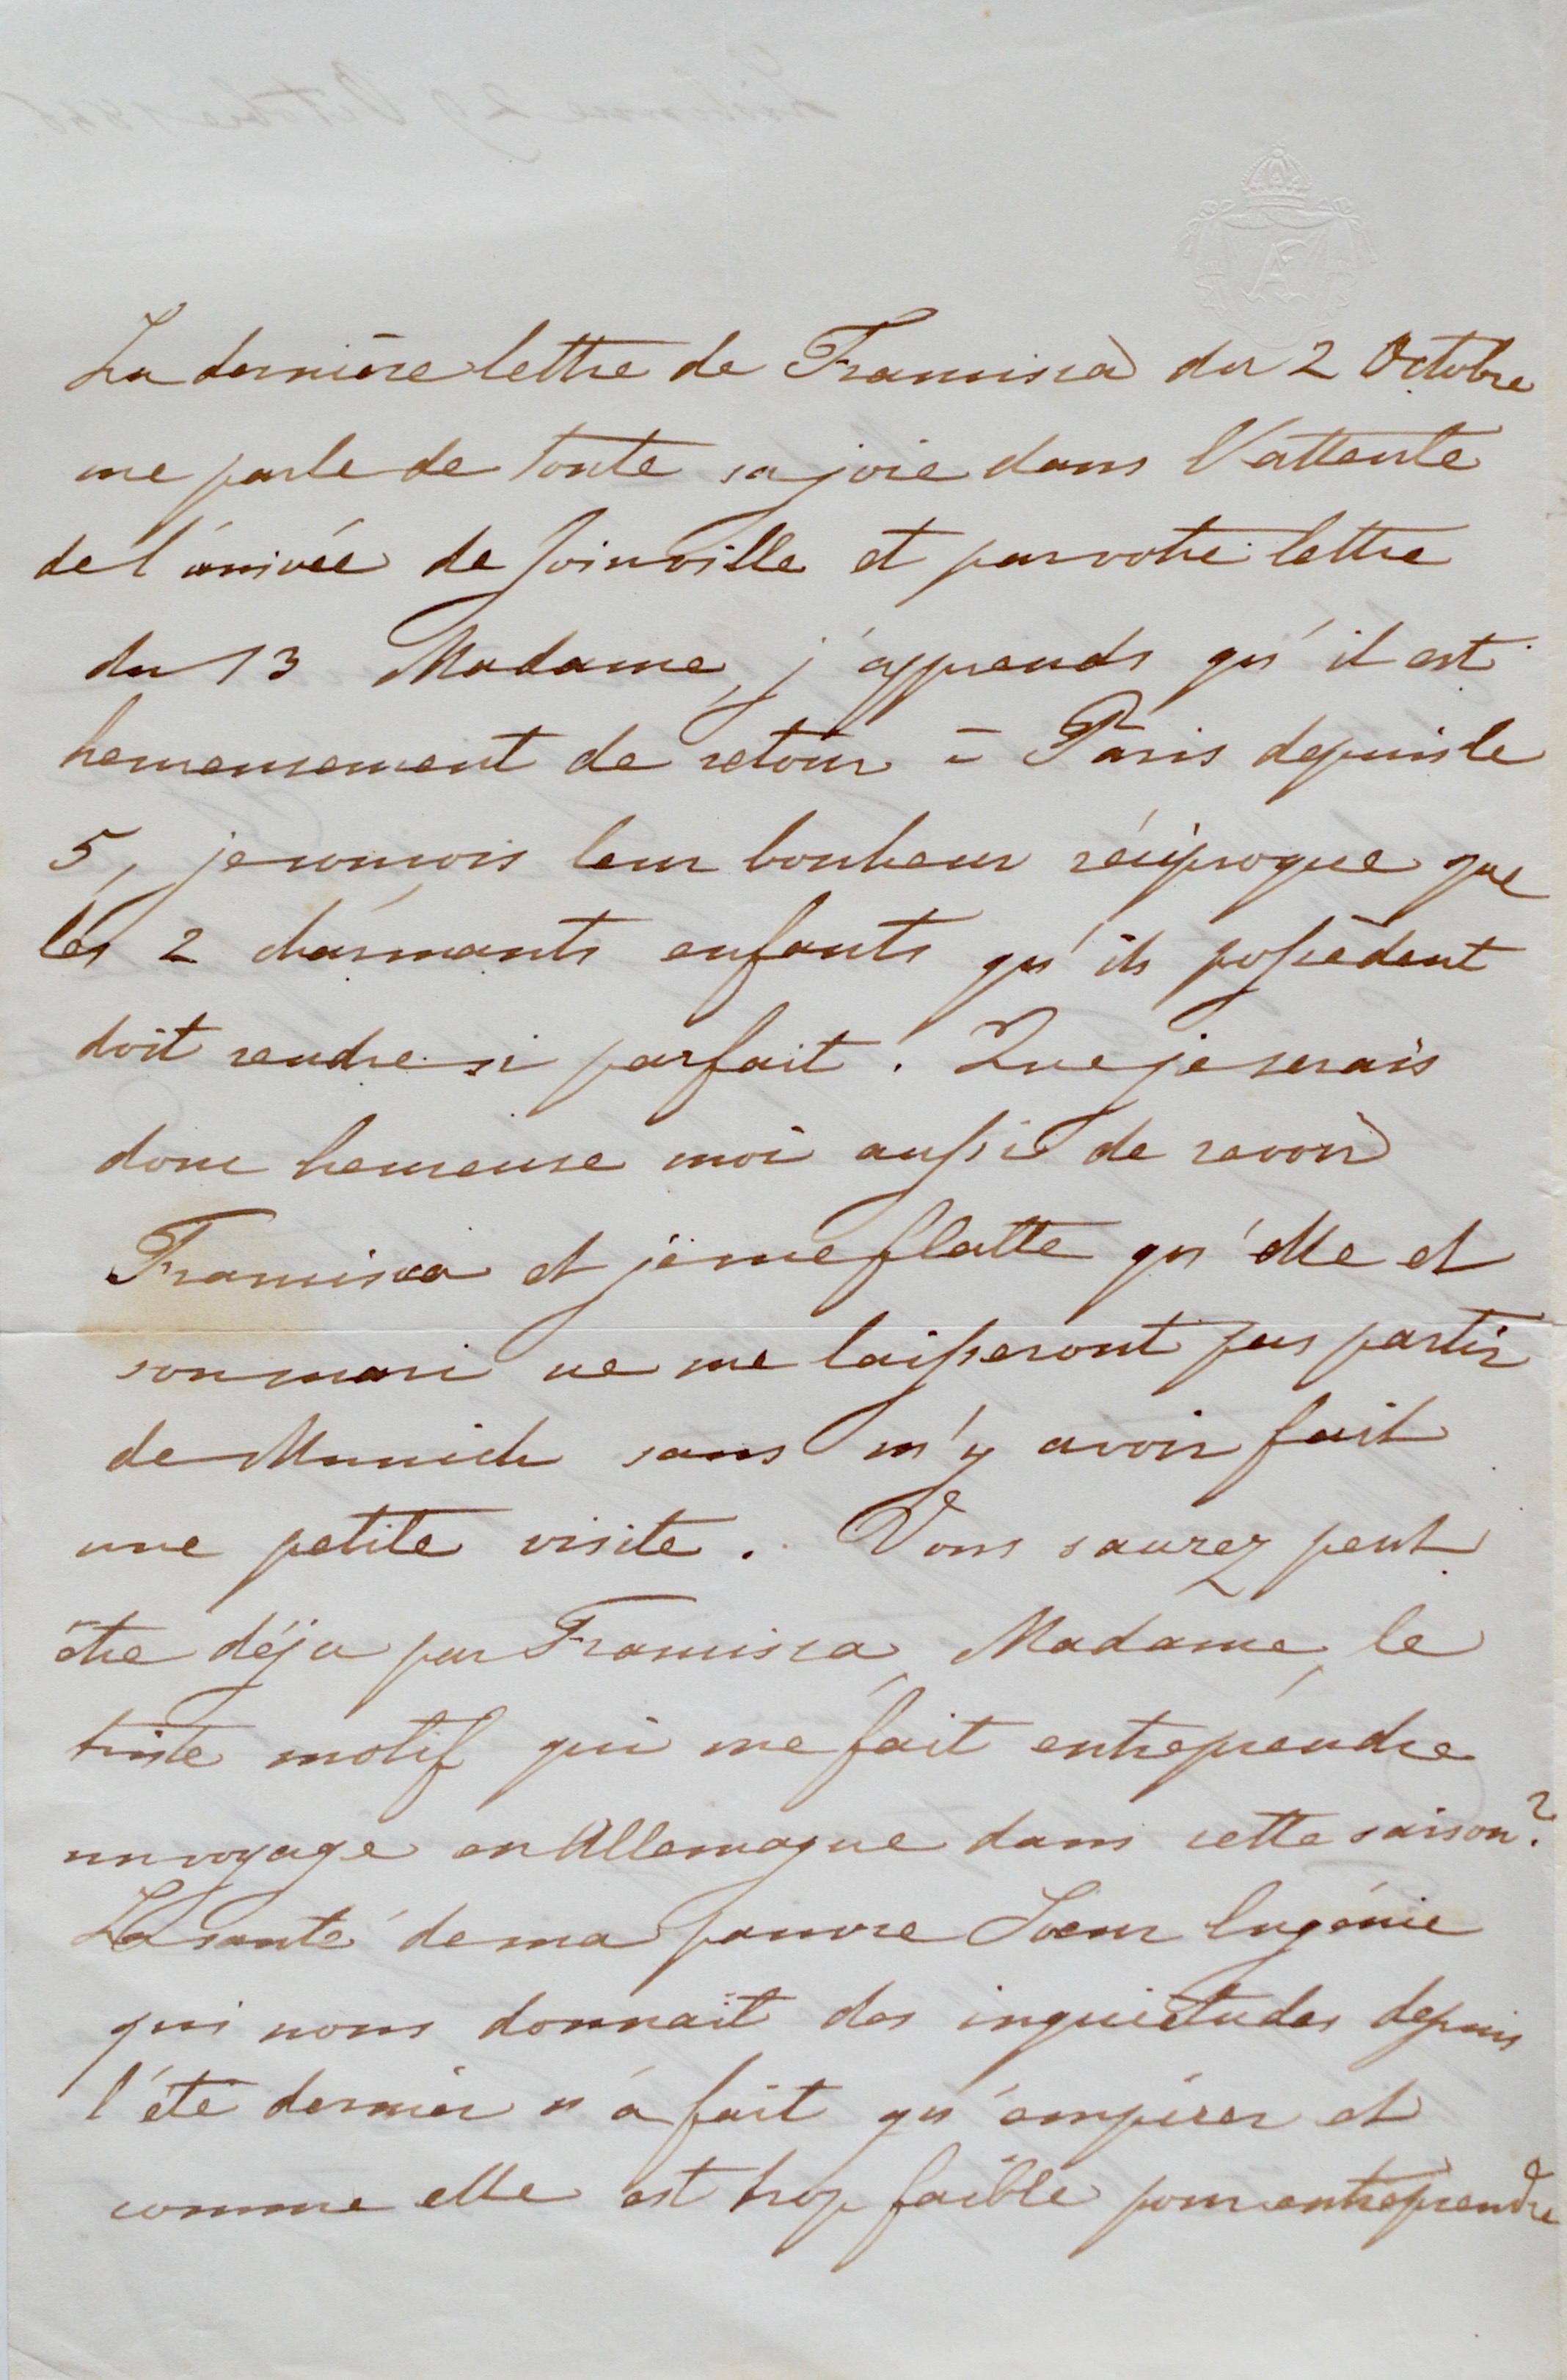 La dernière lettre de Francisca du 2 Octobre
me parle de toute sa joie dans l'attente
de l'arrivée de Joinville et par votre lettre
du 13 Madame, j'apprends qu'il est
heureusement de retour à Paris depuis le
5, je conçois leur bonheur réciproque que
les 2 charmants enfants qu'ils possèdent
doit rendre si parfait. Que je serais
donc heureuse moi aussi de revoir
Francisca et je me flatte qu'elle et
son mari ne me laisseront pas partir
de Munich sans m'y avoir fait
une petite visite. Vous saurez peut
être déja par Francisca, Madame, le
triste motif qui me fait entreprendre
un voyage en Allemagne dans cette saison?
La santé de ma pauvre Soeur Eugénie
qui nous donnait des inquiétudes depuis
l'été dernier n'a fait qu'empirer et
comme elle est trop faible pour entreprendre